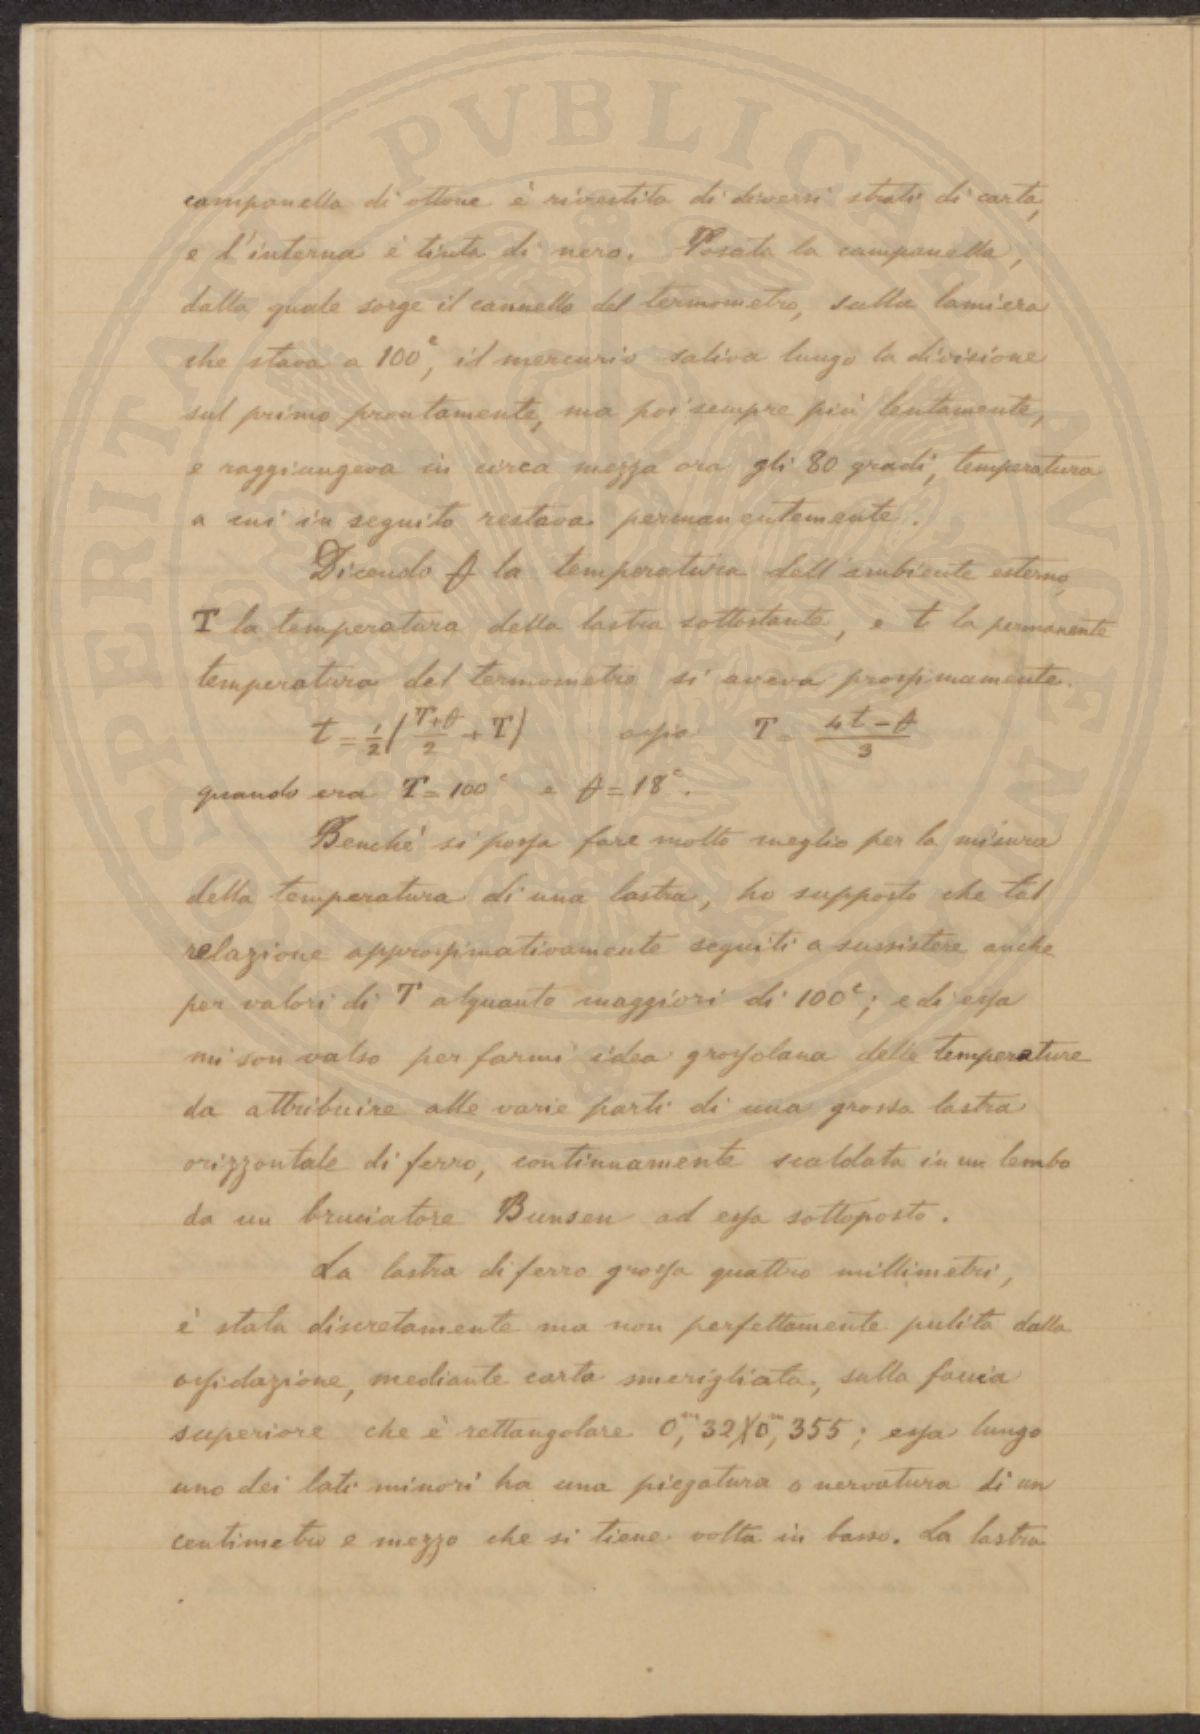 campanella di ottone è rivestita di diversi strati di carta,
e l'interna è tinta di nero. Posata la campanella,
dalla quale sorge il cannello del termometro, sulla lamiera
che stava a 100°, il mercurio saliva lungo la divisione
sul primo prontamente, ma poi sempre più lentamente,
e raggiungeva in circa mezza ora gli 80 gradi, temperatura
a cui in seguito restava permanentemente.
Dicendo θ la temperatura dell'ambiente esterno,
T la temperatura della lastra sottostante, e t la permanente
temperatura del termometro si aveva prossimamente.
t = 1/2 ( (T+θ)/2 + T ) ossia T = (4t - θ)/3
quando era T = 100° e θ = 18°.
Benchè si possa fare molto meglio per la misura
della temperatura di una lastra, ho supposto che tal
relazione approssimativamente seguiti a sussistere anche
per valori di T alquanto maggiori di 100°; e di essa
mi son valso per farmi idea grossolana delle temperature
da attribuire alle varie parti di una grossa lastra
orizzontale di ferro, continuamente scaldata in un lembo
da un bruciatore Bunsen ad essa sottoposto.
La lastra di ferro grossa quattro millimetri,
è stata discretamente ma non perfettamente pulita dalla
ossidazione, mediante carta smerigliata, sulla faccia
superiore che è rettangolare 0,ᵐ32 X 0,ᵐ355; essa lungo
uno dei lati minori ha una piegatura o nervatura di un
centimetro e mezzo che si tiene volta in basso. La lastra
PVBLICA
VERITA
SPERITA